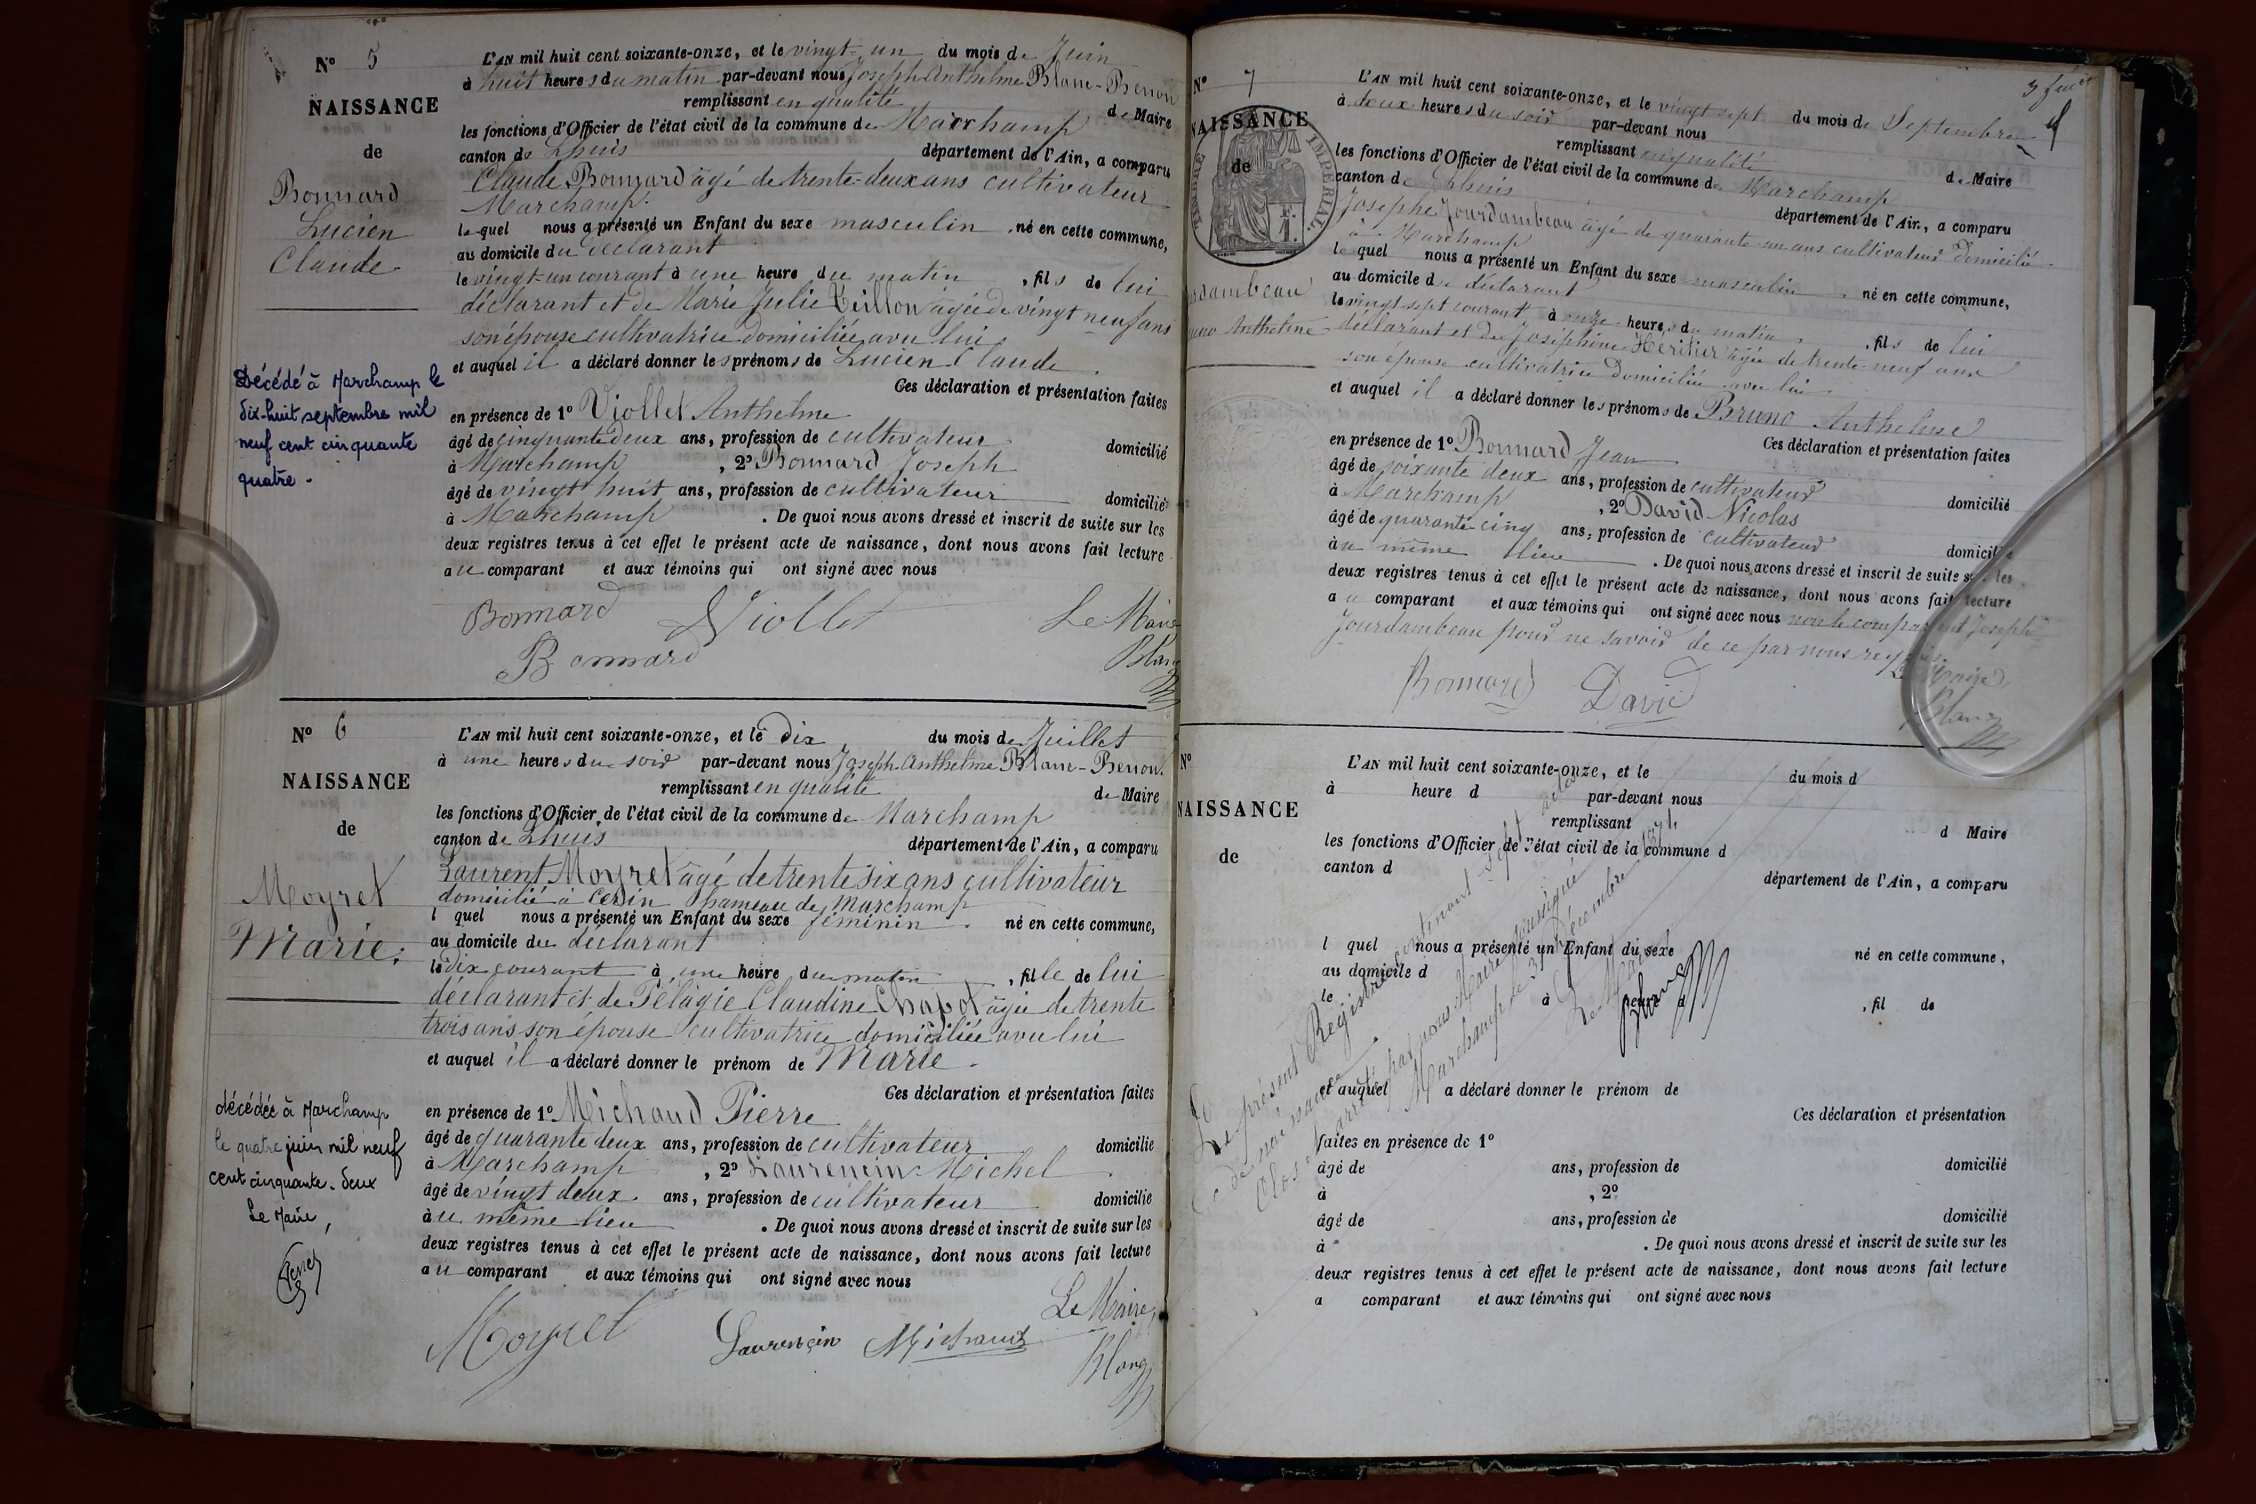 N° 5
NAISSANCE
de
Bonnard
Lucien
Claude
Décédé à Marchamp le
dix-huit septembre mil
neuf cent cinquante
quatre.
L'AN mil huit cent soixante-onze, et le vingt-un du mois de Juin
à huit heures du matin par-devant nous Joseph Anthelme Blanc-Benon
remplissant en qualité de Maire
les fonctions d'Officier de l'état civil de la commune de Marchamp
canton de Lhuis département de l'Ain, a comparu
Claude Bonnard âgé de trente-deux ans cultivateur
Marchamp.
lequel nous a présenté un Enfant du sexe masculin, né en cette commune,
au domicile du déclarant
le vingt-un courant à une heure du matin, fils de lui
déclarant et de Marie Julie Teillon âgée de vingt neuf ans
son épouse cultivatrice domiciliée avec lui
et auquel il a déclaré donner les prénoms de Lucien Claude.
Ces déclaration et présentation faites
en présence de 1° Viollet Anthelme
âgé de cinquante deux ans, profession de cultivateur domicilié
à Marchamp, 2° Bonnard Joseph
âgé de vingt huit ans, profession de cultivateur domicilié
à Marchamp. De quoi nous avons dressé et inscrit de suite sur les
deux registres tenus à cet effet le présent acte de naissance, dont nous avons fait lecture
au comparant et aux témoins qui ont signé avec nous
Bonnard Viollet Le Maire
Bonnard Blanc
N° 6
NAISSANCE
de
Moyret
Marie.
décédée à Marchamp
le quatre juin mil neuf
cent cinquante-deux
Le Maire,
L'AN mil huit cent soixante-onze, et le dix du mois de Juillet
à une heure du soir par-devant nous Joseph Anthelme Blanc-Benon.
remplissant en qualité de Maire
les fonctions d'Officier de l'état civil de la commune de Marchamp
canton de Lhuis département de l'Ain, a comparu
Laurent Moyret âgé de trente six ans cultivateur
domicilié à Cerin hameau de Marchamp
l quel nous a présenté un Enfant du sexe féminin. né en cette commune,
au domicile du déclarant
le dix courant à une heure du matin, fille de lui
déclarant et de Pélagie Claudine Chapot âgée de trente
trois ans son épouse cultivatrice domiciliée avec lui
et auquel il a déclaré donner le prénom de Marie.
Ces déclaration et présentation faites
en présence de 1° Michaud Pierre
âgé de quarante deux ans, profession de cultivateur domicilié
à Marchamp, 2° Laurencin Michel
âgé de vingt deux ans, profession de cultivateur domicilié
au même lieu. De quoi nous avons dressé et inscrit de suite sur les
deux registres tenus à cet effet le présent acte de naissance, dont nous avons fait lecture
au comparant et aux témoins qui ont signé avec nous
Moyret Laurençin Michaud Le Maire,
Blanc
N° 7
NAISSANCE
de
TIMBRE IMPERIAL.
1 F.
rdambeau
uno Anthelme
L'AN mil huit cent soixante-onze, et le vingt sept du mois de Septembre
à deux heures du soir par-devant nous
remplissant en qualité de Maire
les fonctions d'Officier de l'état civil de la commune de Marchamp
canton de Lhuis département de l'Ain, a comparu
Josephe Jourdambeau âgé de quarante-un ans cultivateur domicilié
à Marchamp
lequel nous a présenté un Enfant du sexe masculin. né en cette commune,
au domicile du déclarant
le vingt sept courant à onze heures du matin, fils de lui
déclarant et de Joséphine Héritier âgée de trente-neuf ans
son épouse cultivatrice domiciliée avec lui
et auquel il a déclaré donner les prénoms de Bruno Anthelme
Ces déclaration et présentation faites
en présence de 1° Bonnard Jean
âgé de soixante deux ans, profession de cultivateur domicilié
à Marchamp, 2° David Nicolas
âgé de quarante-cinq ans, profession de cultivateur domicilié
au même lieu. De quoi nous avons dressé et inscrit de suite sur les
deux registres tenus à cet effet le présent acte de naissance, dont nous avons fait lecture
au comparant et aux témoins qui ont signé avec nous non le comparant Joseph
Jourdambeau pour ne savoir de ce par nous requis.
Le Maire
Bonnard David
Blanc
N°
NAISSANCE
de
L'AN mil huit cent soixante-onze, et le du mois d
à heure d par-devant nous
remplissant d Maire
les fonctions d'Officier de l'état civil de la commune d
canton d département de l'Ain, a comparu
l quel nous a présenté un Enfant du sexe né en cette commune,
au domicile d
le à heure d, fil de
et auquel a déclaré donner le prénom de
Ces déclaration et présentation
faites en présence de 1°
âgé de ans, profession de domicilié
à, 2°
âgé de ans, profession de domicilié
à. De quoi nous avons dressé et inscrit de suite sur les
deux registres tenus à cet effet le présent acte de naissance, dont nous avons fait lecture
a comparant et aux témoins qui ont signé avec nous
Le présent Registre contenant sept actes
de naissance
Clos et arrêté par nous Maire soussigné
Marchamp le 31 Décembre 1871.
Le Maire
Blanc